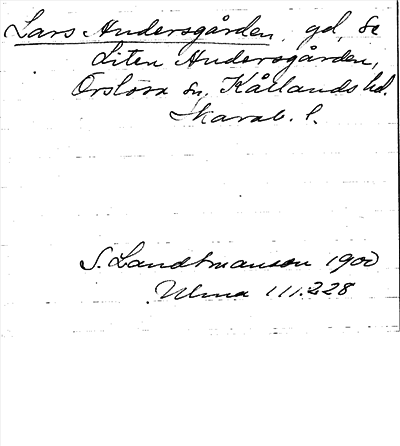 Lars Andersgården, gd, se
Liten Andersgården,
Örslösa sn, Kållands hd.
Skarab. l.
S. Landtmanson 1900
Ulma 111:228